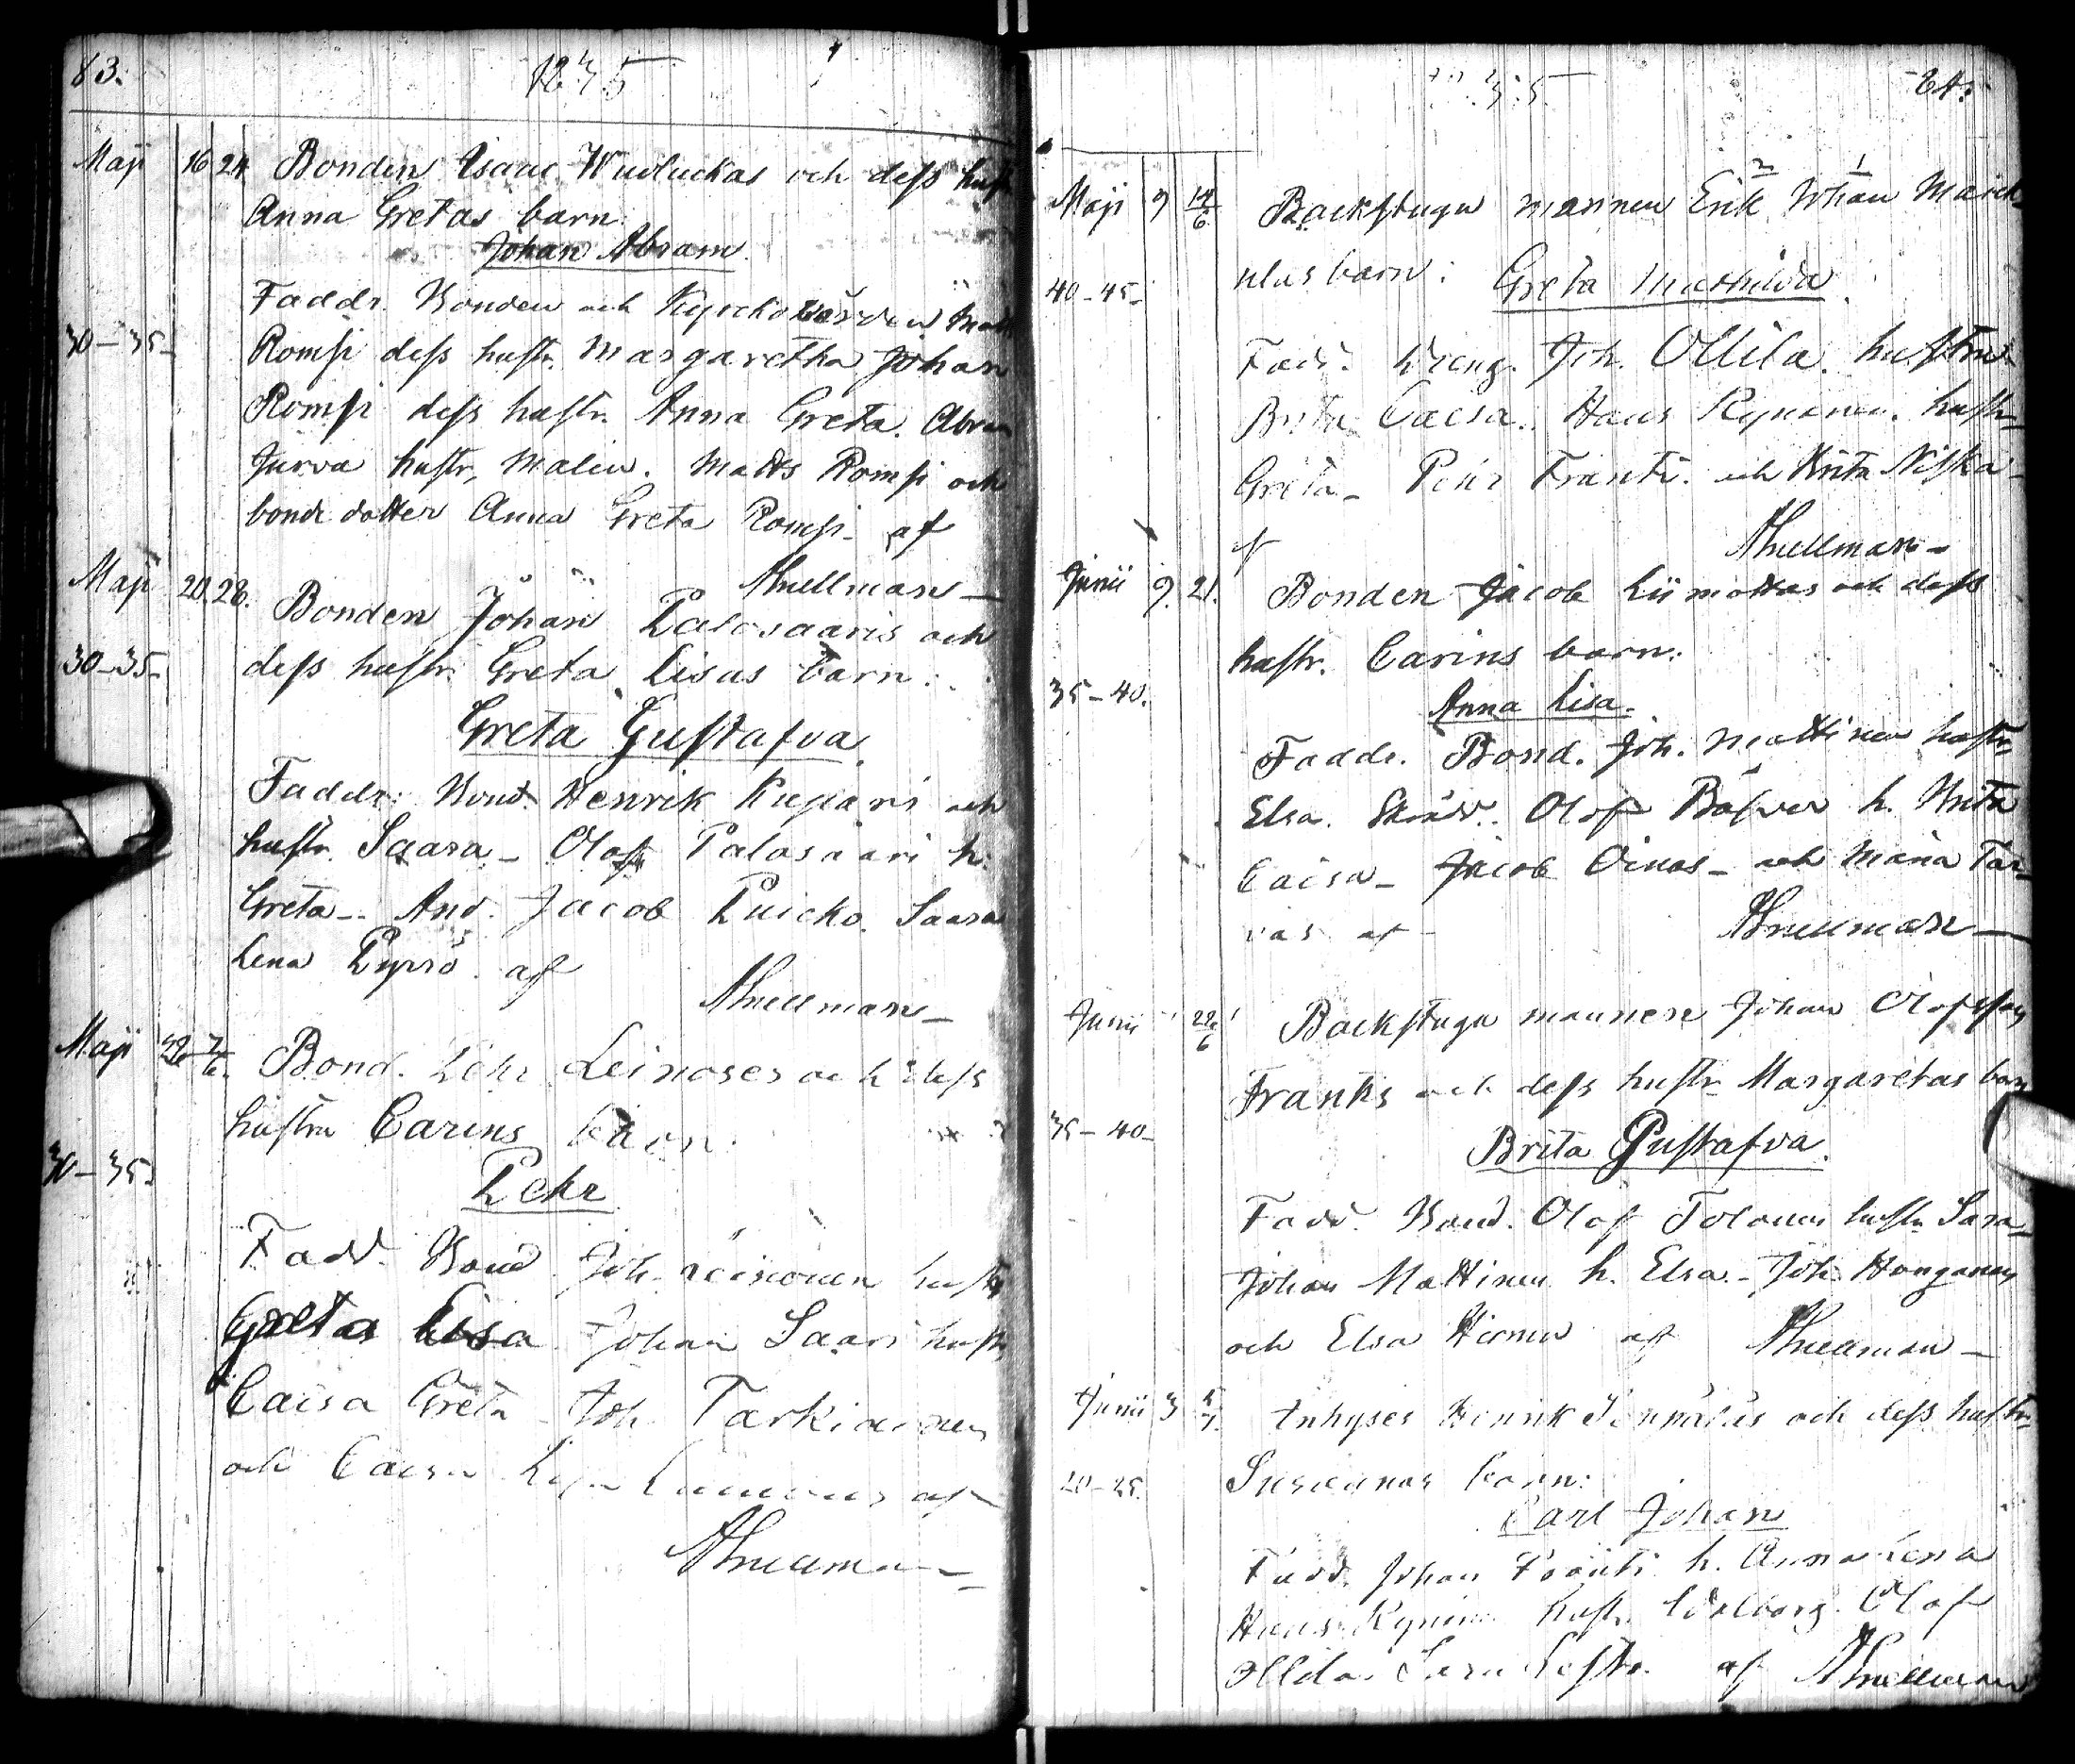 83.
1835
Maji 16 24 Bonden Isaac Wuoluckas och dess hust
Anna Gretas barn:
Johan Abram.
Faddr. Bonden och Kyrckovärden Matts
30-35- Rompi dess hustr. Margaretha Johan
Rompi dess hustr. Anna Greta. Abram
Jurva hustr, Malin. Matts Rompi och
bonde dotter Anna Greta Rompi- af
Snellman-
Maji 20. 28. Bonden Johan Palosaaris och
30-35- dess hustr. Greta Lisas barn:
Greta Gustafva.
Faddr: Bond. Henrik Kuparis och
hustr. Saara- Olof Palosaari h:
Greta-- And. Jacob Puicko. Saara
Lena Pyrrö. af
Snellman-
Maji 7/6. Bond. Pehr Leinoses och dess
hustru Carins barn:
30-35. Pehr
Fadd. Bond. Joh. hustr
Greta Lisa Johan Saari hustr
Caisa Greta- Joh. Tarkiainen
och Caisa af
Snellman-
1835 84.
2 1
Maji 9 14/6. Backstugu mannen Erik Johan Maick-
40-45- ulas barn: Greta Mathilda.
Fadd. Dreng. Joh. Ollila. hustru
Brita Caisa. Hans Kynänen. hustr-
Greta- Pehr Frantti. och Brita Niska-
af Snellman-
Junii 9. 21. Bonden Jacob Liimattas och dess
hustr. Carins barn:
35-40. Anna Lisa.
Faddr. Bond. Joh. Mattinen hustr-
Elsa. Skrädd. Olof Bäfver h. Brita
Caisa- Jacob Oinas- och Maria Tar-
vas af- Snellman-
Junii 22/6 Backstugu mannen Johan Olofsson
Frantts och dess hustr. Margaretas barn
35-40- Brita Gustafva.
Fadd. Bond. Olof Tolonen hustr. Sara-
Johan Mattinen h. Elsa.- Joh. Honganen
och Elsa af Snellman-
Junii 3 5/7. Inhyses Henrik och dess hustr-
20-25. Susannas barn:
Carl Johan
Fadd. Johan Frantti h. Anna Lena
Hans Kynänen hustr. Walborg. Olof
Ollila. Sara af Snellman